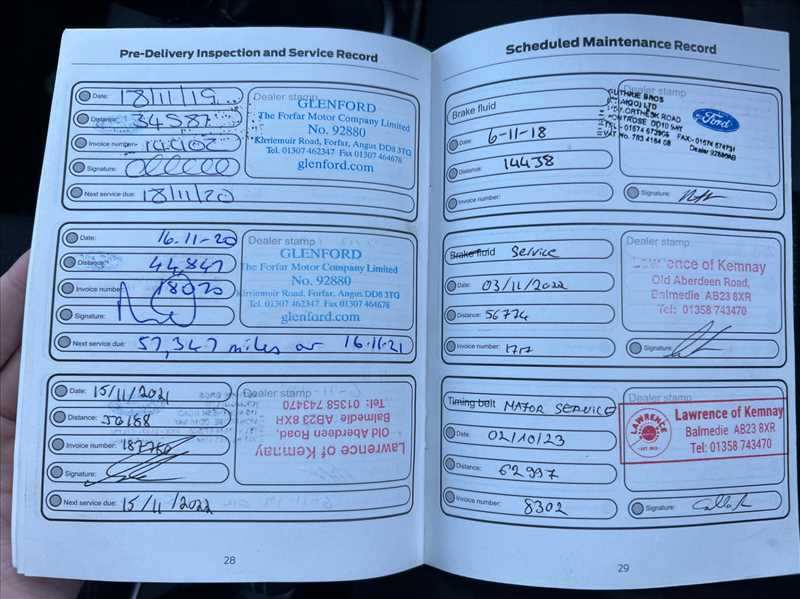 Pre-Delivery Inspection and Service Record
Date: 18/11/19
Distance: 34587
Invoice number:
Signature:
Next service due: 18/11/20
Dealer stamp
GLENFORD
The Forfar Motor Company Limited
No. 92880
Kirriemuir Road, Forfar, Angus DD8 3TQ
Tel. 01307 462347 Fax 01307 464676
glenford.com
Date: 16-11-20
Distance: 44,847
Invoice number: 18020
Signature:
Next service due: 57,347 miles or 16-11-21
Dealer stamp
GLENFORD
The Forfar Motor Company Limited
No. 92880
Kirriemuir Road, Forfar, Angus DD8 3TQ
Tel. 01307 462347 Fax 01307 464676
glenford.com
Date: 15/11/2021
Distance: 50188
Invoice number:
Signature:
Next service due: 15/11/2022
Dealer stamp
Lawrence of Kemnay
Old Aberdeen Road,
Balmedie AB23 8XR
Tel: 01358 743470
28
Scheduled Maintenance Record
Brake fluid
Date: 6-11-18
Distance: 14438
Invoice number:
Dealer stamp
GUTHRIE BROS
LTD
ROAD
MONTROSE DD10
FAX:- 01674 674731
VAT No.
Dealer
Ford
Signature:
Brake fluid Service
Date: 03/11/2022
Distance: 56774
Invoice number: 1717
Dealer stamp
Lawrence of Kemnay
Old Aberdeen Road,
Balmedie AB23 8XR
Tel: 01358 743470
Signature:
Timing belt MAJOR SERVICE
Date: 02/10/23
Distance: 62997
Invoice number: 8302
Dealer stamp
LAWRENCE
Lawrence of Kemnay
Balmedie AB23 8XR
Tel: 01358 743470
Signature:
29